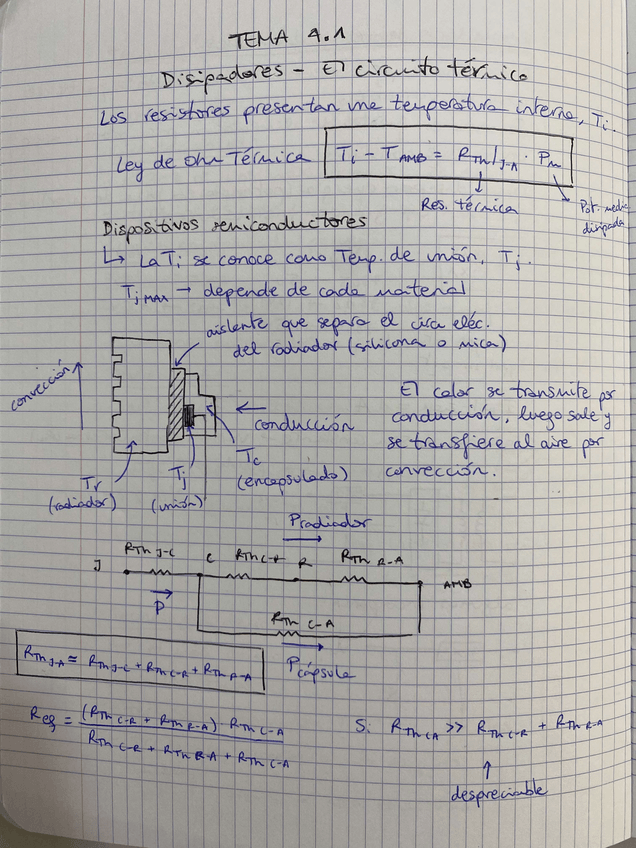 TEMA 4.1
Disipadores - El circuito térmico
Los resistores presentan una temperatura interna, Ti.
Ley de Ohm Térmica Ti - TAMB = RTh|J-A · Pm
Res. térmica
Pot. media
disipada
Dispositivos semiconductores
↳ La Ti se conoce como Temp. de unión, Tj.
Tj MAX → depende de cada material
aislante que separa el circu eléc.
del radiador (silicona o mica)
convección
conducción
El calor se transmite por
conducción, luego sale y
se transfiere al aire por
convección.
Tr
(radiador)
Tj
(unión)
Tc
(encapsulado)
Pradiador
J RTh J-C C RTh C-R R RTh R-A AMB
P
RTh C-A
Pcápsula
RTh J-A ≈ RTh J-C + RTh C-R + RTh R-A
Req = (RTh C-R + RTh R-A) · RTh C-A / RTh C-R + RTh R-A + RTh C-A
Si RTh CA >> RTh C-R + RTh R-A
↑
despreciable